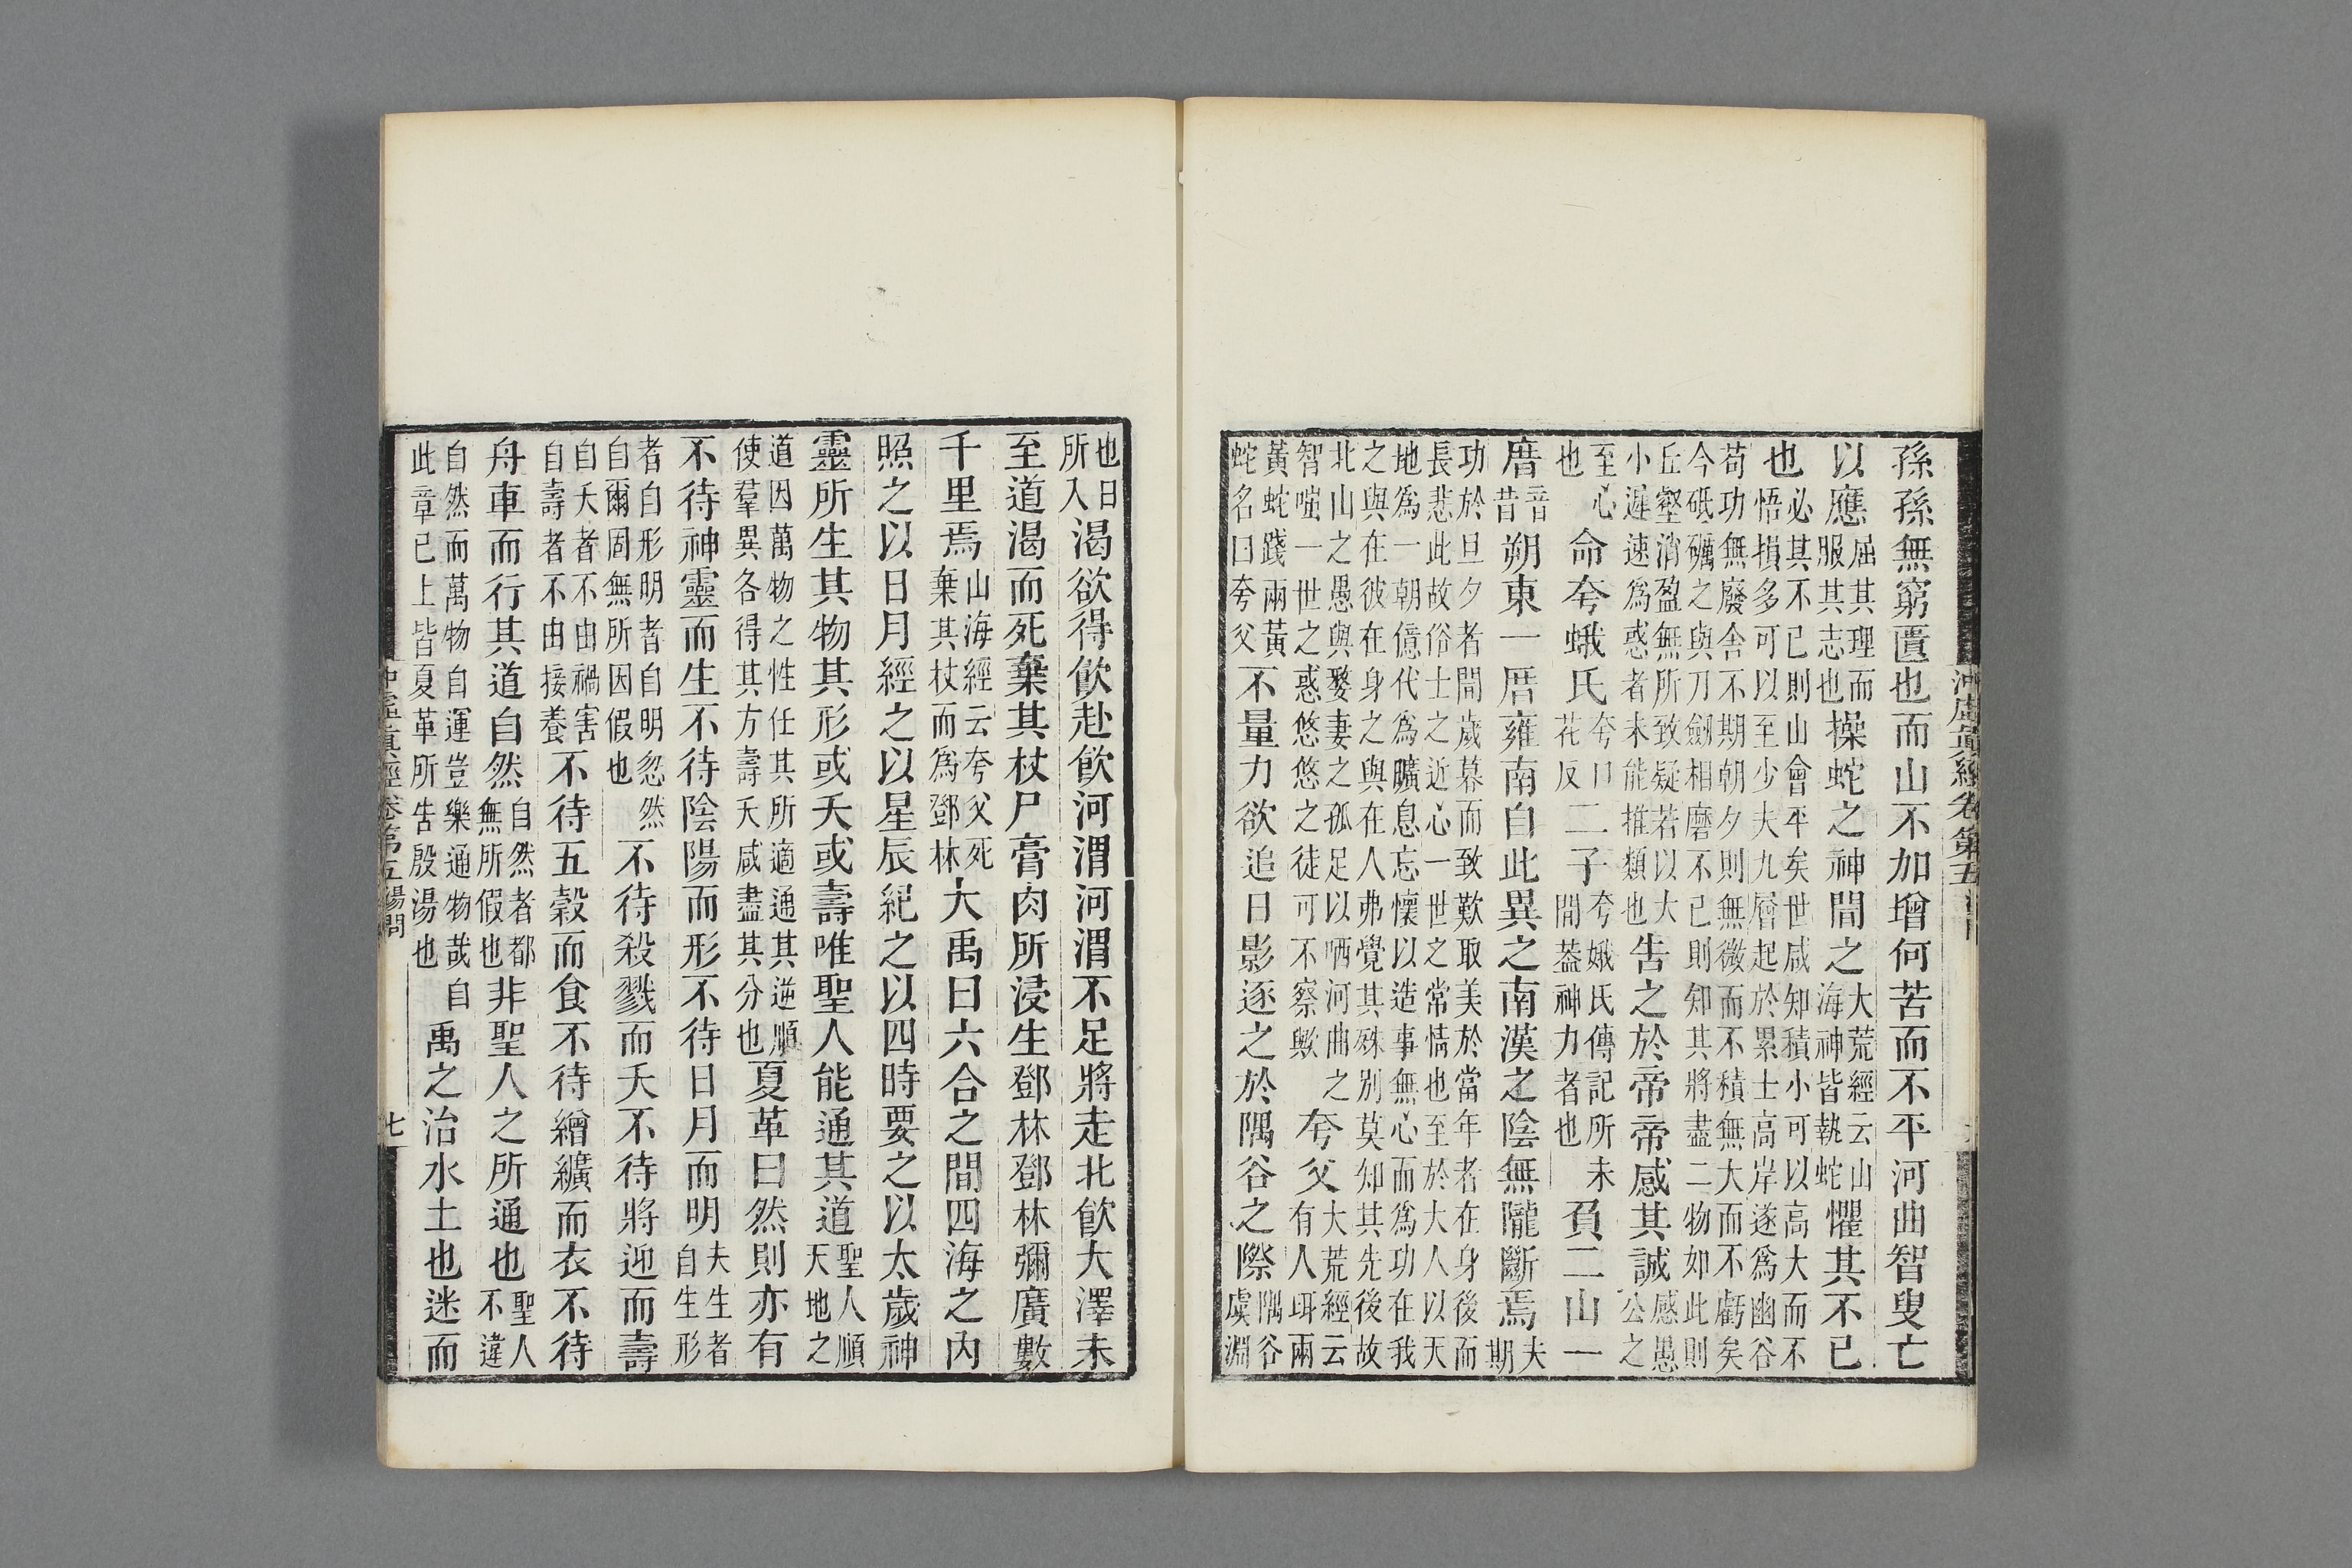 孫孫無窮匱也而山不加增何苦而不平河曲智叟亡
以應屈其理而服其志也操蛇之神聞之大荒經云山海神皆執蛇懼其不已
也必其不已則山會平矣世咸知積小可以高大而不悟損多可以至少夫九層起於累土高岸遂爲幽谷
苟功無廢舍不期朝夕則無微而不積無大而不虧矣今砥礪之與刀劒相磨不已則知其將盡二物如此則
丘壑消盈無所致疑若以大小遲速爲惑者未能推類也告之於帝帝感其誠感愚公之
至心也命夸蛾氏夸口花反二子夸娥氏傳記所未聞蓋神力者也負二山一
厝音昔朔東一厝雍南自此異之南漢之陰無隴斷焉夫期
功於旦夕者聞歲暮而致歎取美於當年者在身後而長悲此故俗士之近心一世之常情也至於大人以天
地爲一朝億代爲曠息忘懷以造事無心而爲功在我之與在彼在身之與在人弗覺其殊別莫知其先後故
北山之愚與嫠妻之孤足以哂河曲之智嗤一世之惑悠悠之徒可不察歟夸父大荒經云有人珥兩
黃蛇踐兩黃蛇名曰夸父不量力欲追日影逐之於隅谷之際隅谷虞淵
也日所入渴欲得飮赴飮河渭河渭不足將走北飮大澤未
至道渴而死棄其杖尸膏肉所浸生鄧林鄧林彌廣數
千里焉山海經云夸父死棄其杖而爲鄧林大禹曰六合之間四海之內
照之以日月經之以星辰紀之以四時要之以太歲神
靈所生其物其形或夭或壽唯聖人能通其道聖人順天地之
道因萬物之性任其所適通其逆順使羣異各得其方壽夭咸盡其分也夏革曰然則亦有
不待神靈而生不待陰陽而形不待日月而明夫生者自生形
者自形明者自明忽然自爾固無所因假也不待殺戮而夭不待將迎而壽
自夭者不由禍害自壽者不由接養不待五穀而食不待繒纊而衣不待
舟車而行其道自然自然者都無所假也非聖人之所通也聖人不違
自然而萬物自運豈樂通物哉自此章已上皆夏革所告殷湯也禹之治水土也迷而
沖虛眞經卷第五湯問
七